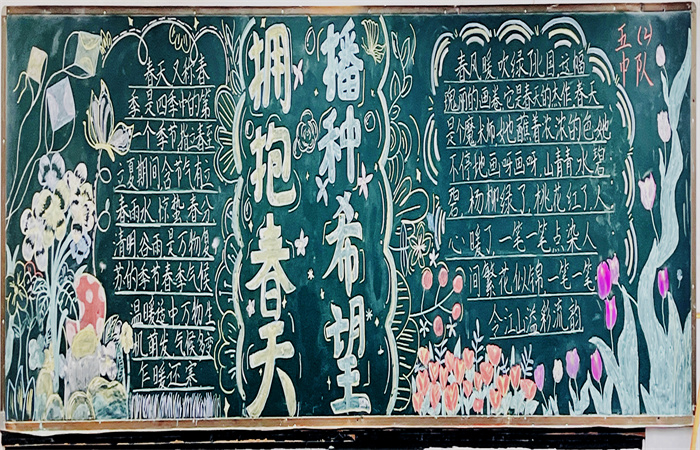 播种希望
拥抱春天
春天又称春
季是四季中的第
一个季节指立春至
立夏期间含节气有立
春雨水惊蛰春分
清明谷雨是万物复
苏的季节春季气候
温暖适中万物生
机萌发气候多变
乍暖还寒
五(2)
中队
春风暖吹绿
瑰丽的画卷它是春天的杰作春天
是个魔术师她蘸着水的色她
不停地画呀画呀,山青青水碧
碧,杨柳绿了,桃花红了,人
心暖了一笔一笔点染人
间繁花似锦一笔一笔
令江山溢彩流韵